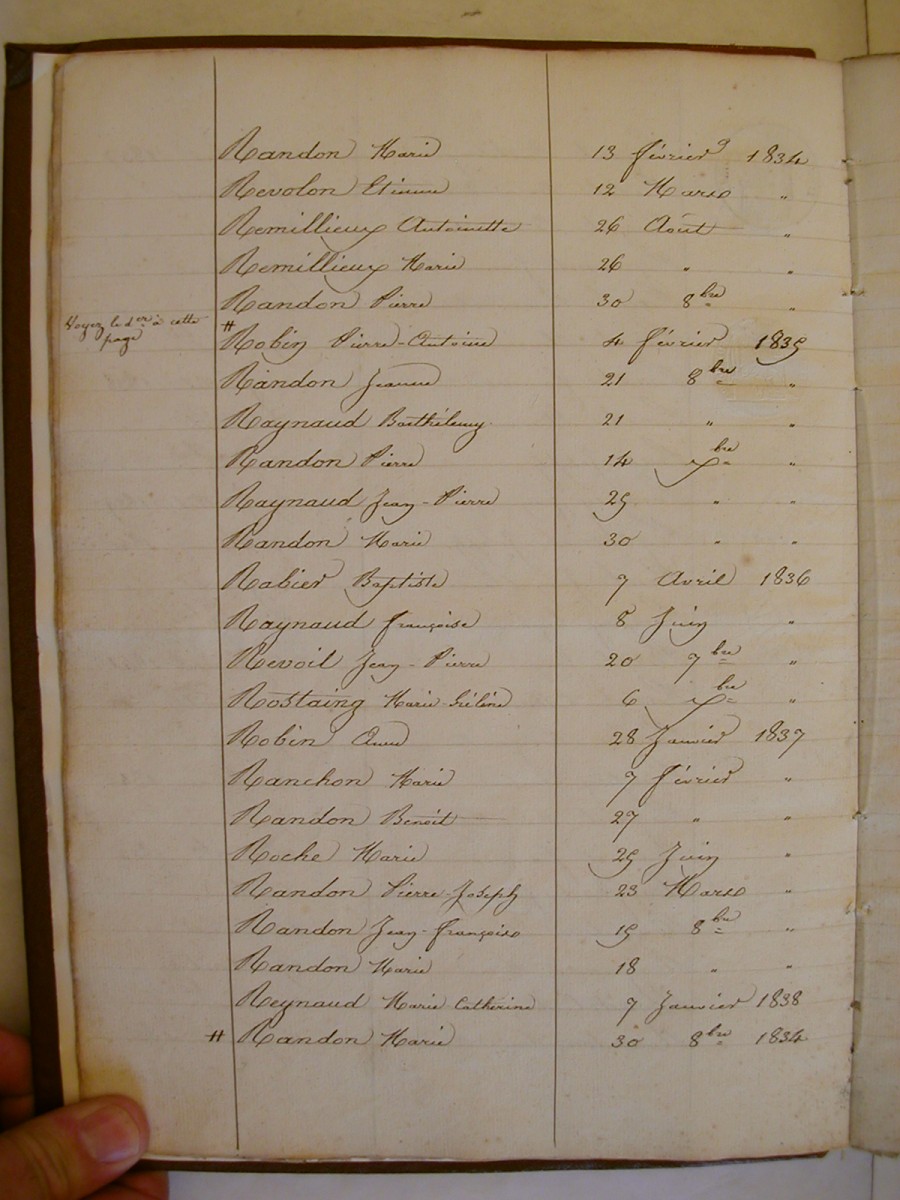 Randon Marie 13 février 1834
Revolon Etienne 12 Mars "
Remillieux Antoinette 26 Août "
Remillieux Marie 26 " "
Randon Pierre 30 8bre "
Voyez le der à cette
page
# Robin Pierre-Antoine 4 février 1835
Randon Jeanne 21 8bre "
Raynaud Barthélemy 21 " "
Randon Pierre 14 xbre "
Raynaud Jean-Pierre 25 " "
Randon Marie 30 " "
Rabier Baptiste 7 Avril 1836
Raynaud françoise 8 Juin "
Revoil Jean-Pierre 20 7bre "
Rostaing Marie-Hélène 6 xbre "
Robin Anne 28 Janvier 1837
Ranchon Marie 7 février "
Randon Benoît 27 " "
Roche Marie 25 Juin "
Randon Pierre-Joseph 23 Mars "
Randon Jean-françois 15 8bre "
Randon Marie 18 " "
Reynaud Marie-Catherine 7 Janvier 1838
# Randon Marie 30 8bre 1834